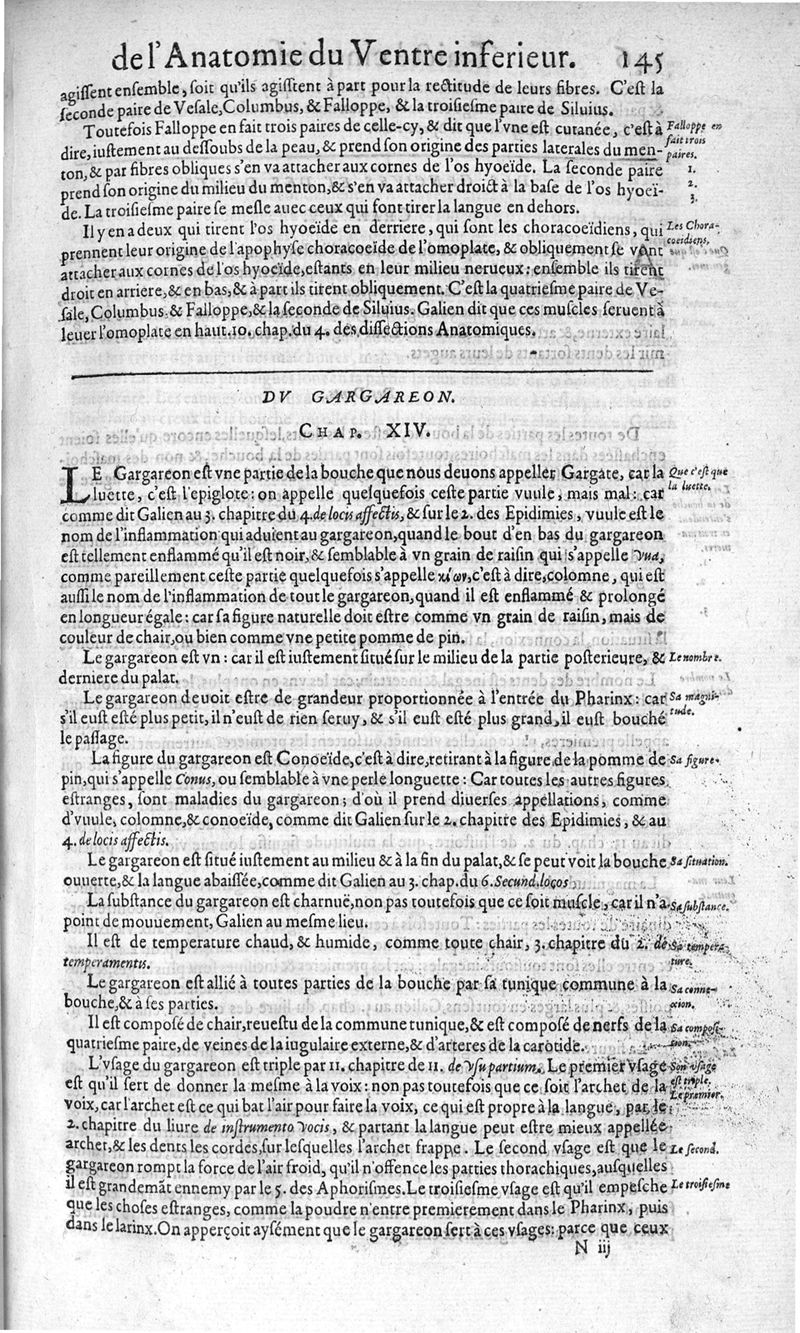 de l'Anatomie du Ventre inferieur. 145
agiſſent enſemble, ſoit qu'ils agiſſent à part pour la rectitude de leurs fibres. C'eſt la
ſeconde paire de Veſale, Columbus, & Falloppe, & la troiſieſme paire de Siluius.
Toutefois Falloppe en fait trois paires de celle-cy, & dit que l'vne eſt cutanée, c'eſt à
Falloppe en
dire, iuſtement au deſſoubs de la peau, & prend ſon origine des parties laterales du men-
fait trois
paires.
ton, & par fibres obliques s'en va attacher aux cornes de l'os hyoeïde. La ſeconde paire
1.
prend ſon origine du milieu du menton, & s'en va attacher droict à la baſe de l'os hyoeï-
2.
3.
de. La troiſieſme paire ſe meſle auec ceux qui font tirer la langue en dehors.
Il y en a deux qui tirent l'os hyoeïde en derriere, qui ſont les choracoeïdiens, qui
Les Chora-
prennent leur origine de l'apophyſe choracoeïde de l'omoplate, & obliquement ſe vont
coeidiens,
attacher aux cornes de l'os hyoeïde, eſtants en leur milieu nerueux: enſemble ils tirent
droit en arriere, & en bas, & à part ils titent obliquement. C'eſt la quatrieſme paire de Ve-
ſale, Columbus & Falloppe, & la ſeconde de Siluius. Galien dit que ces muſcles ſeruent à
leuer l'omoplate en haut. 10. chap. du 4. des diſſections Anatomiques.
DV GARGAREON.
CHAP. XIV.
LE Gargareon eſt vne partie de la bouche que nous deuons appeller Gargate, car la
Que c'eſt que
luette, c'eſt l'epiglote: on appelle quelquefois ceſte partie vuule, mais mal: car
la luette.
comme dit Galien au 3. chapitre du 4. de locis affectis, & ſur le 2. des Epidimies, vuule eſt le
nom de l'inflammation qui aduient au gargareon, quand le bout d'en bas du gargareon
eſt tellement enflammé qu'il eſt noir, & ſemblable à vn grain de raiſin qui s'appelle Vua,
comme pareillement ceſte partie quelquefois s'appelle κίων, c'eſt à dire, colomne, qui eſt
auſſi le nom de l'inflammation de tout le gargareon, quand il eſt enflammé & prolongé
en longueur égale: car ſa figure naturelle doit eſtre comme vn grain de raiſin, mais de
couleur de chair, ou bien comme vne petite pomme de pin.
Le gargareon eſt vn: car il eſt iuſtement ſitué ſur le milieu de la partie poſterieure, &
Le nombre.
derniere du palat.
Le gargareon deuoit eſtre de grandeur proportionnée à l'entrée du Pharinx: car
Sa magni-
s'il euſt eſté plus petit, il n'euſt de rien ſeruy, & s'il euſt eſté plus grand, il euſt bouché
tude.
le paſſage.
La figure du gargareon eſt Conoeïde, c'eſt à dire, retirant à la figure de la pomme de
Sa figure.
pin, qui s'appelle Conus, ou ſemblable à vne perle longuette: Car toutes les autres figures
eſtranges, ſont maladies du gargareon; d'où il prend diuerſes appellations, comme
d'vuule, colomne, & conoeïde, comme dit Galien ſur le 2. chapitre des Epidimies, & au
4. de locis affectis.
Le gargareon eſt ſitué iuſtement au milieu & à la fin du palat, & ſe peut voit la bouche
Sa ſituation.
ouuerte, & la langue abaiſſée, comme dit Galien au 3. chap. du 6. Secund. locos.
La ſubſtance du gargareon eſt charnuë, non pas toutefois que ce ſoit muſcle, car il n'a
Sa ſubſtance.
point de mouuement, Galien au meſme lieu.
Il eſt de temperature chaud, & humide, comme toute chair, 3. chapitre du 2. de
Sa tempera-
temperamentis.
ture.
Le gargareon eſt allié à toutes parties de la bouche par ſa tunique commune à la
Sa conne-
bouche, & à ſes parties.
xion.
Il eſt compoſé de chair, reueſtu de la commune tunique, & eſt compoſé de nerfs de la
Sa compoſi-
quatrieſme paire, de veines de la iugulaire externe, & d'arteres de la carotide.
tion.
L'vſage du gargareon eſt triple par 11. chapitre de 11. de vſu partium. Le premier vſage
Son vſage
eſt qu'il ſert de donner la meſme à la voix: non pas toutefois que ce ſoit l'archet de la
eſt triple.
voix, car l'archet eſt ce qui bat l'air pour faire la voix, ce qui eſt propre à la langue, par le
Le premier.
2. chapitre du liure de inſtrumento vocis, & partant la langue peut eſtre mieux appellée
archet, & les dents les cordes, ſur leſquelles l'archet frappe. Le ſecond vſage eſt que le
Le ſecond.
gargareon rompt la force de l'air froid, qu'il n'offence les parties thorachiques, auſquelles
il eſt grandemāt ennemy par le 5. des Aphoriſmes. Le troiſieſme vſage eſt qu'il empeſche
Le troiſieſme
que les choſes eſtranges, comme la poudre n'entre premierement dans le Pharinx, puis
dans le larinx. On apperçoit ayſément que le gargareon ſert à ces vſages: parce que ceux
N iij